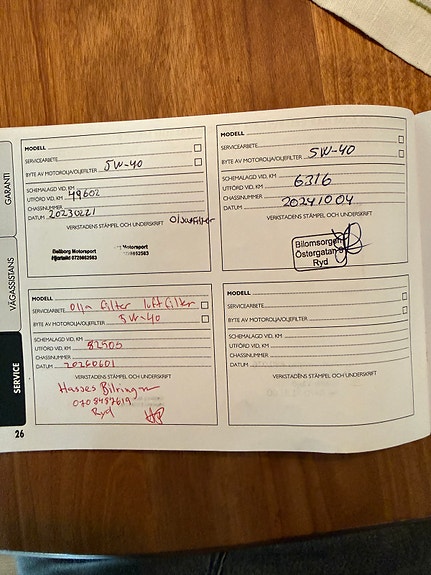 GARANTI
VÄGASSISTANS
SERVICE
26
MODELL
SERVICEARBETE
BYTE AV MOTOROLJA/OLJEFILTER 5W-40
SCHEMALAGD VID, KM
UTFÖRD VID, KM 49602
CHASSINUMMER
DATUM 20230221 Oljaufilter
VERKSTADENS STÄMPEL OCH UNDERSKRIFT
Motorsport
MODELL
SERVICEARBETE
BYTE AV MOTOROLJA/OLJEFILTER 5W-40
SCHEMALAGD VID, KM
UTFÖRD VID, KM 6316
CHASSINUMMER
DATUM 20241004
VERKSTADENS STÄMPEL OCH UNDERSKRIFT
Bilomsorgen
Östergatan
Ryd
MODELL
SERVICEARBETE olja filter luftfilter
BYTE AV MOTOROLJA/OLJEFILTER 5W-40
SCHEMALAGD VID, KM
UTFÖRD VID, KM 82505
CHASSINUMMER
DATUM 20260601
VERKSTADENS STÄMPEL OCH UNDERSKRIFT
Hasses Bilringar
0708487619
Ryd HP
MODELL
SERVICEARBETE
BYTE AV MOTOROLJA/OLJEFILTER
SCHEMALAGD VID, KM
UTFÖRD VID, KM
CHASSINUMMER
DATUM
VERKSTADENS STÄMPEL OCH UNDERSKRIFT